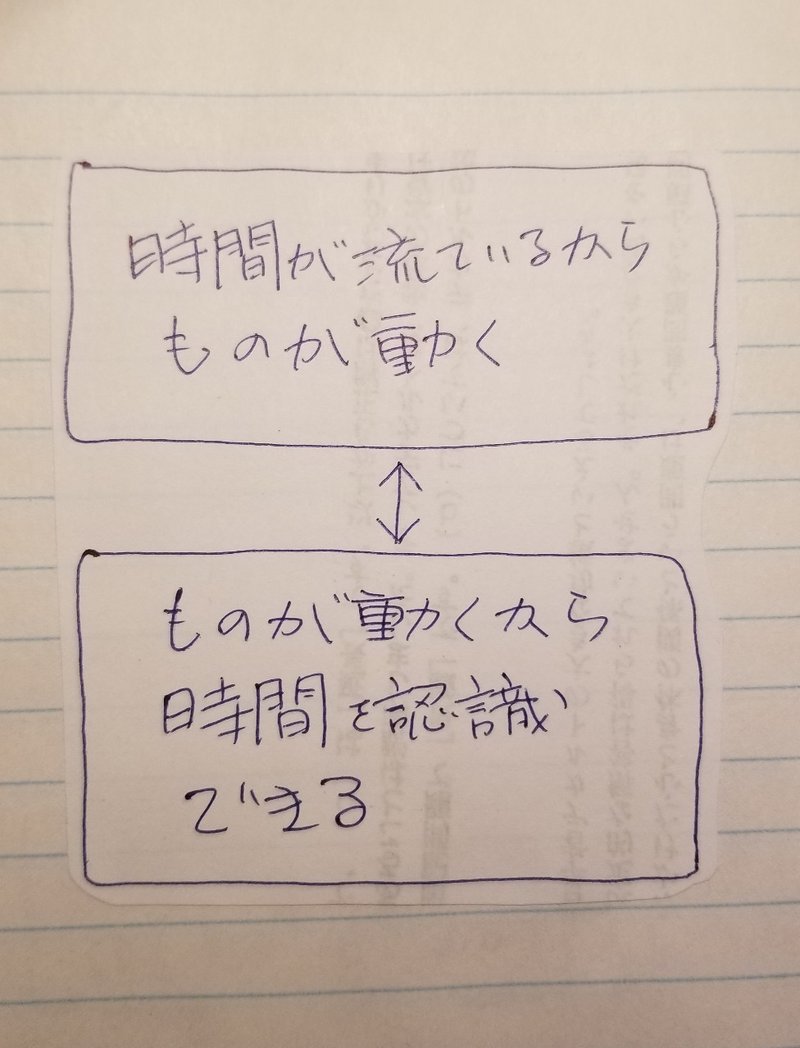 時間が流ているから
ものが動く
ものが動くから
時間を認識が
できる